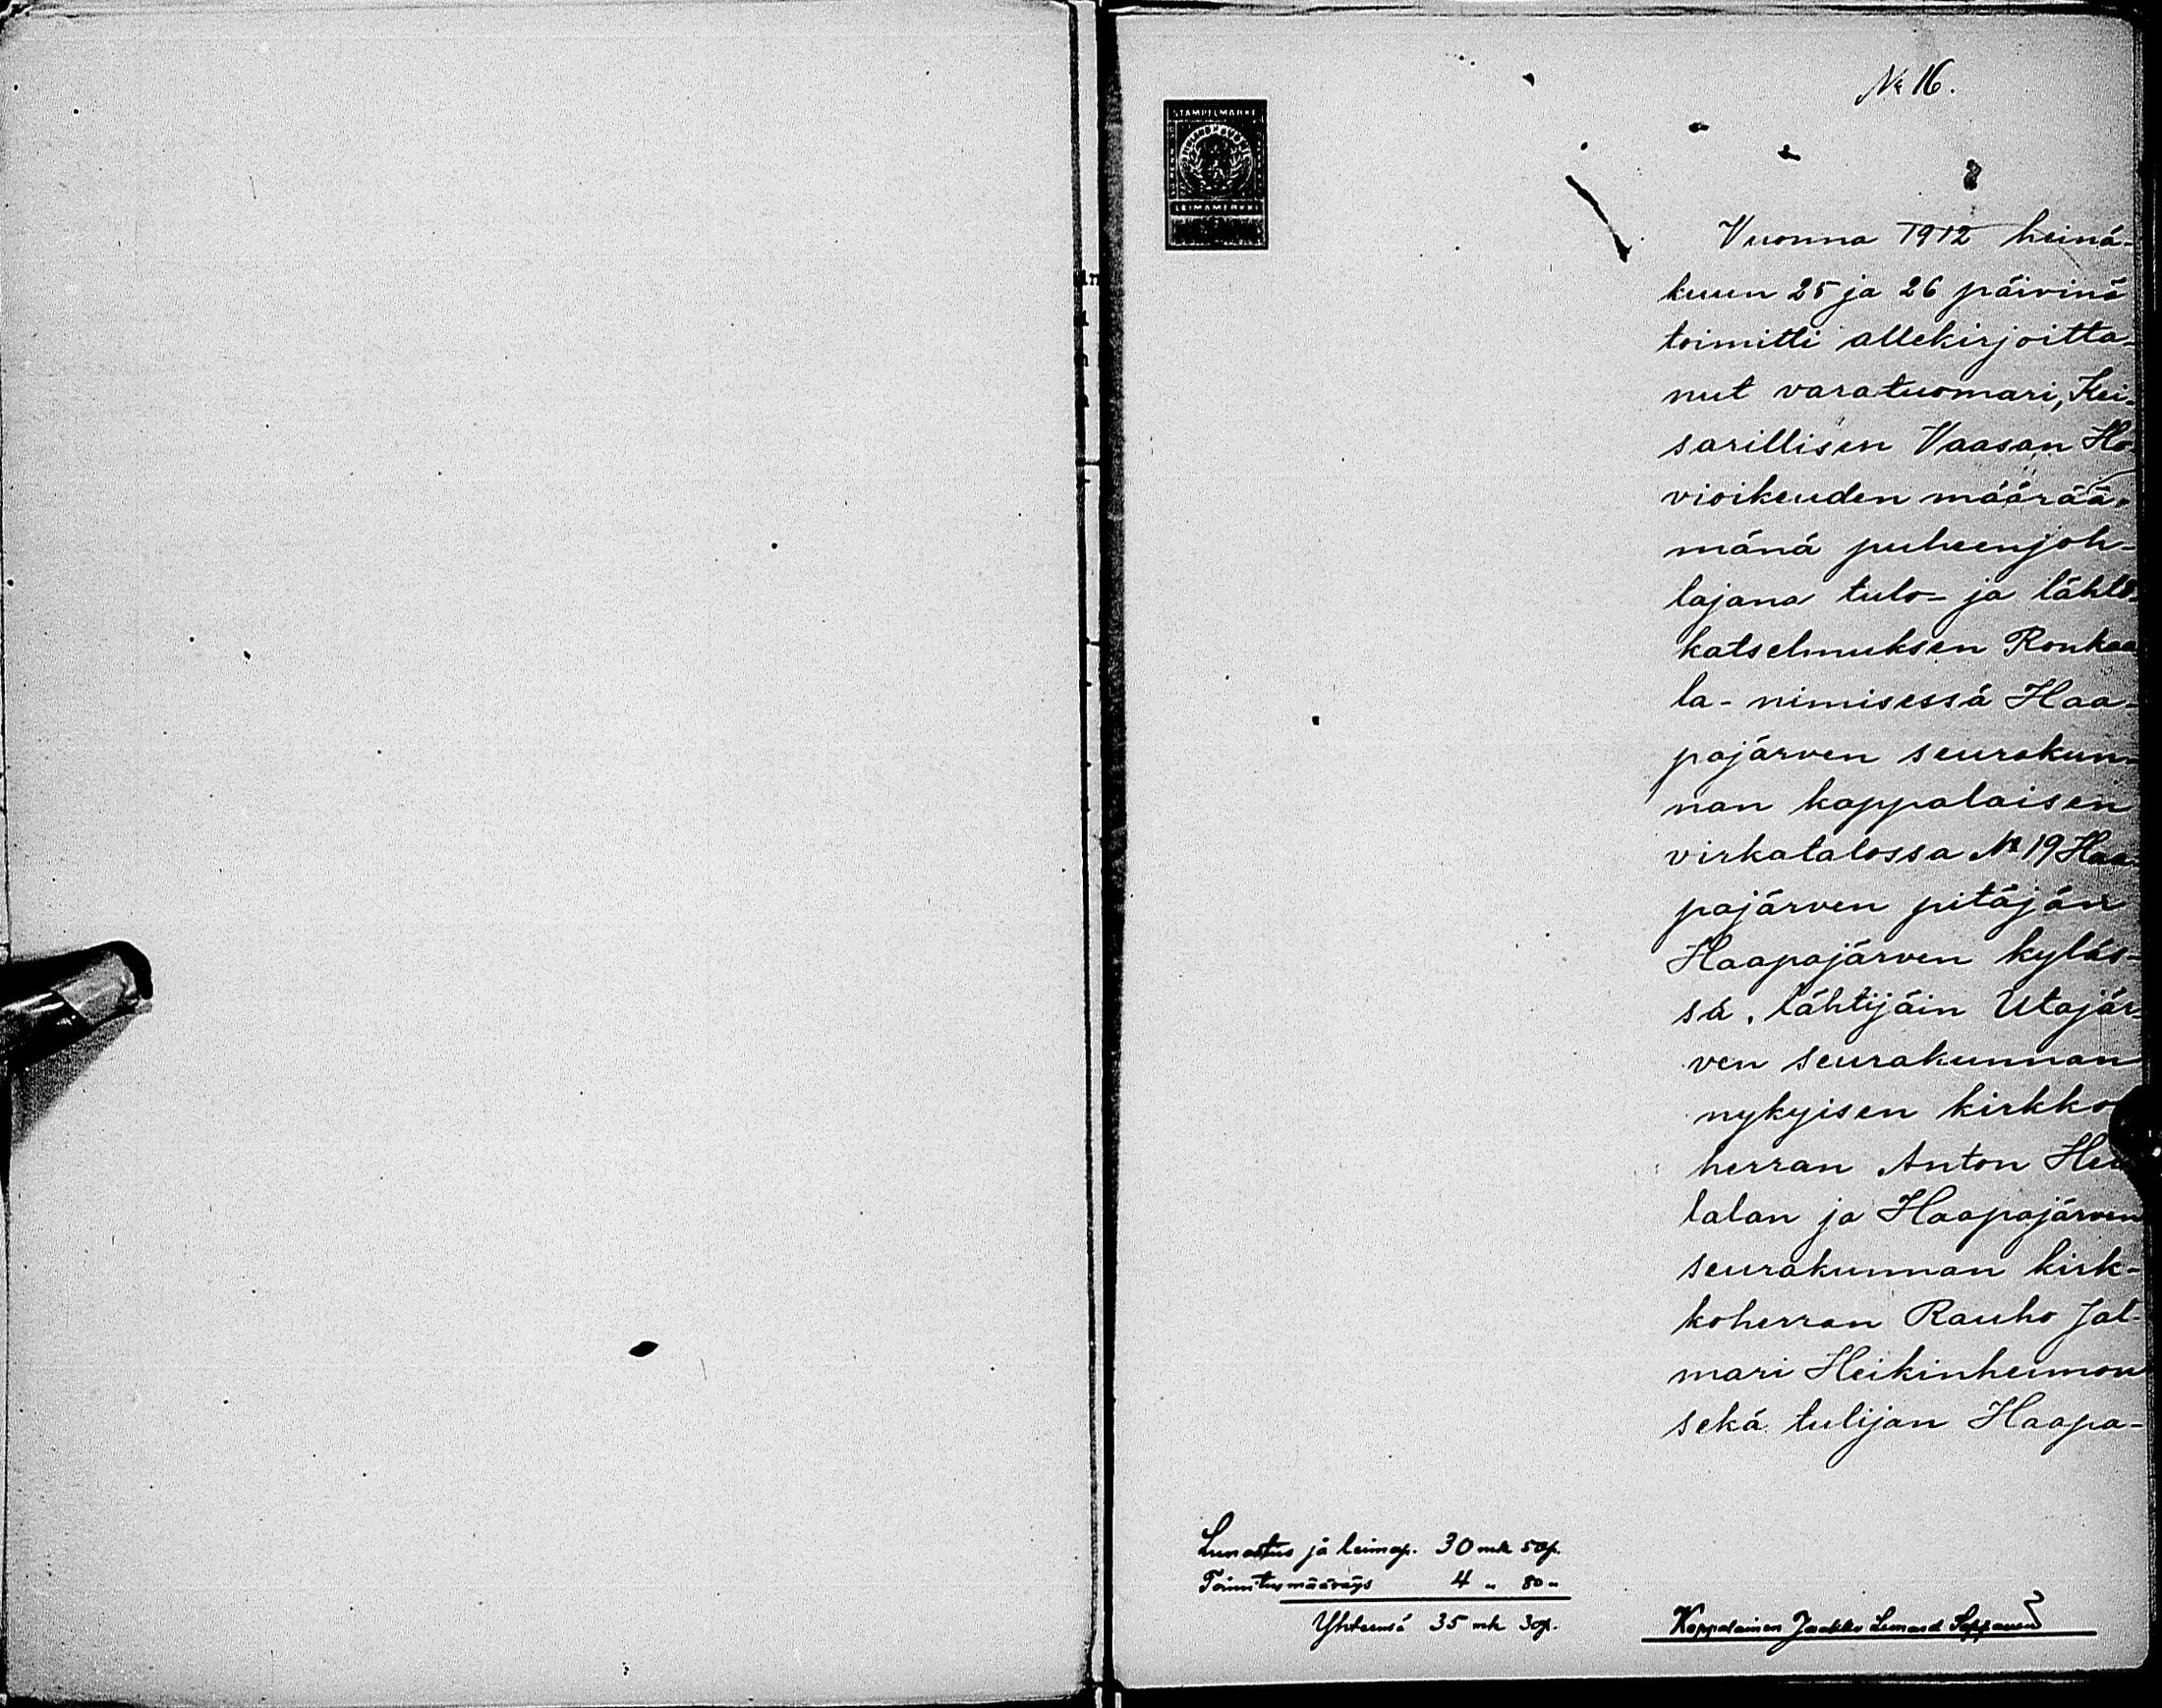 № 16.
STÄMPELMÄRKE
LEIMAMERKKI
Vuonna 1912 heinä-
kuun 25 ja 26 päivinä
toimitti allekirjoitta-
nut varatuomari, Kei-
sarillisen Vaasan Ho-
vioikeuden määrää-
mänä puheenjoh-
tajana tulo- ja lähtö-
katselmuksen Ronkaa-
la- nimisessä Haa-
pajärven seurakun-
nan kappalaisen
virkatalossa № 19 Haa-
pajärven pitäjän
Haapajärven kyläs-
sä, lähtijäin Utajär-
ven seurakunnan
nykyisen kirkko
herran Anton
lalan ja Haapajärven
seurakunnan kirk-
koherran Rauho Jal-
mari Heikinheimon
sekä tulijan Haapa-
Lunastus ja leimap. 30 mk 50 p.
Toimitusmääräys 4 „ 80 „
Yhteensä 35 mk 30 p.
Kappalainen Jaakko Lennard Seppanen